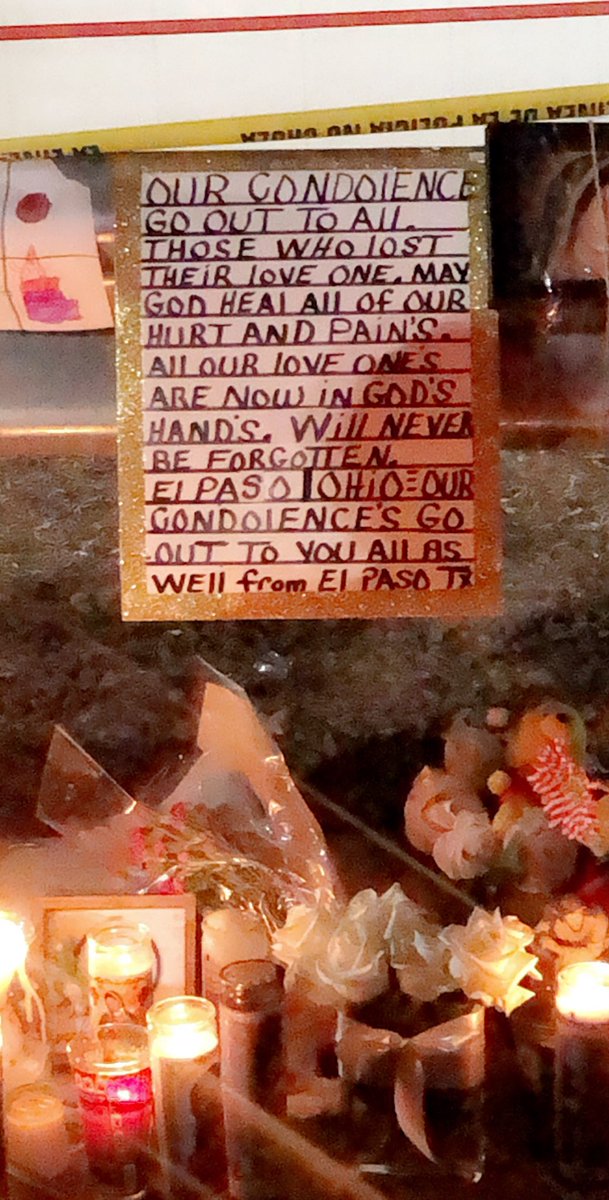 LINEA DE LA POLICIA NO CRUZA
OUR CONDOlENCE
GO OUT TO All.
THOSE WHO lOST
THEiR lOVE ONE. MAY
GOD HEAl All OF OUR
HURT AND PAiN'S.
All OUR lOVE ONE'S
ARE NOW iN GOD'S
HAND'S. Will NEVER
BE FORGOTTEN.
El PASO | OHiO=OUR
CONDOlENCE'S GO
OUT TO YOU All AS
WEll from El PASO TX